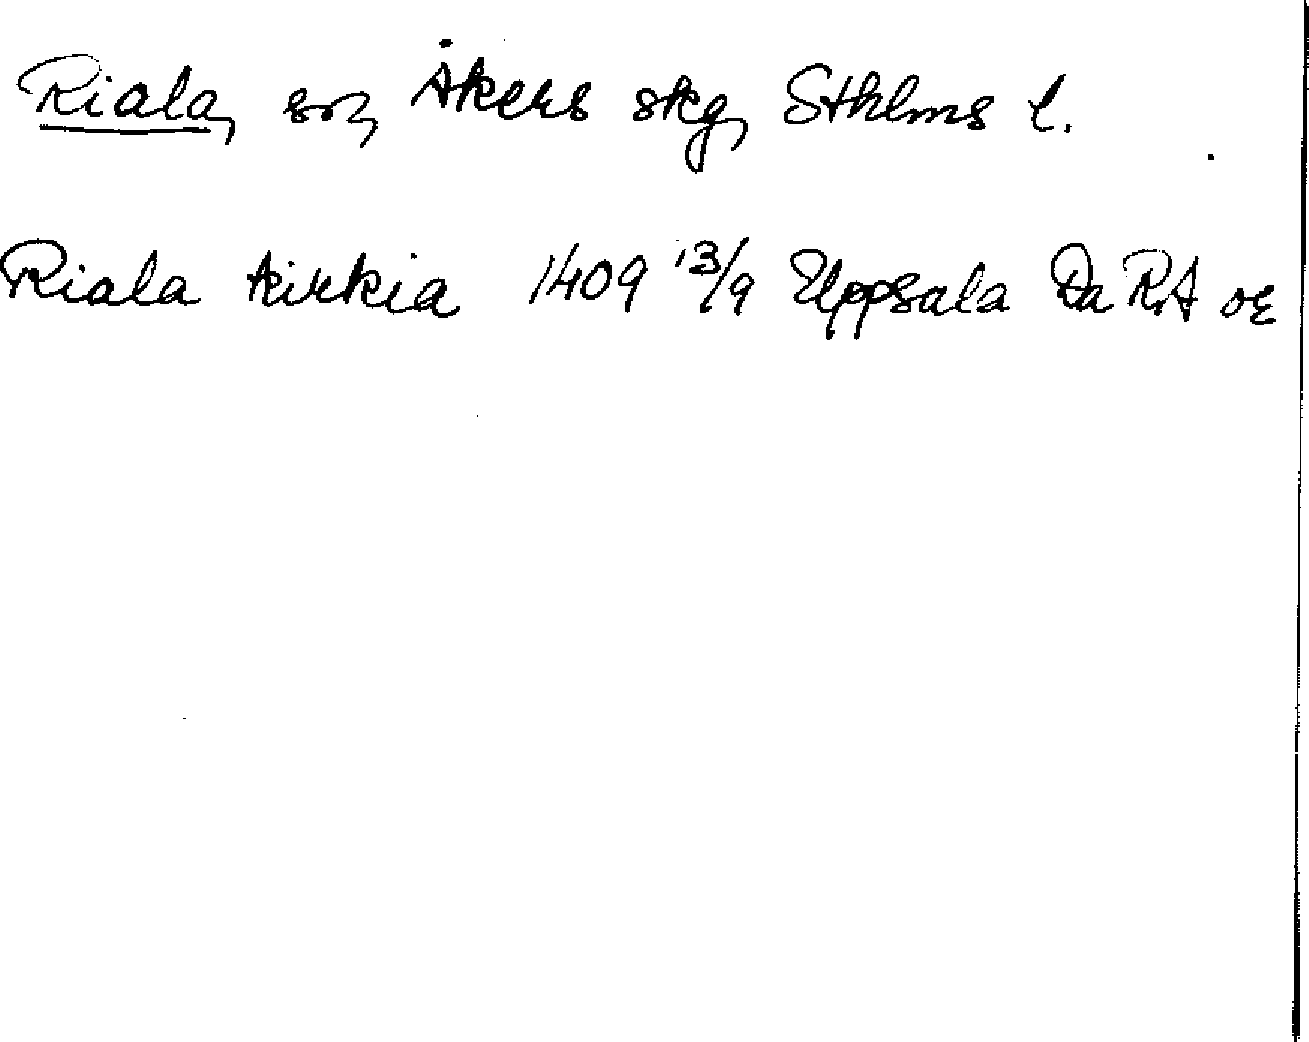 Riala, sn, Åkers skg, Sthlms l.
Riala kirkia 1409 13/9 Uppsala Da RA or